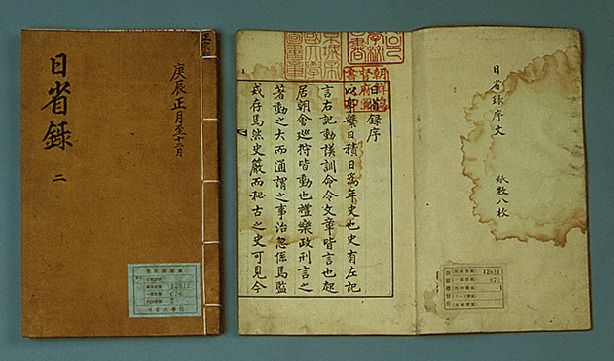 日省錄
二
庚辰正月至十二月
12811
서울大學校
日省錄序
以事繫日積日爲年史也史有左記
言右記動謨訓命令文章皆言也起
居朝會巡狩皆動也禮樂政刑言之
著動之大而通謂之事治忽係焉監
戒存焉然史嚴而秘古之史可見今
日省錄序文
紙數八枚
12811
1